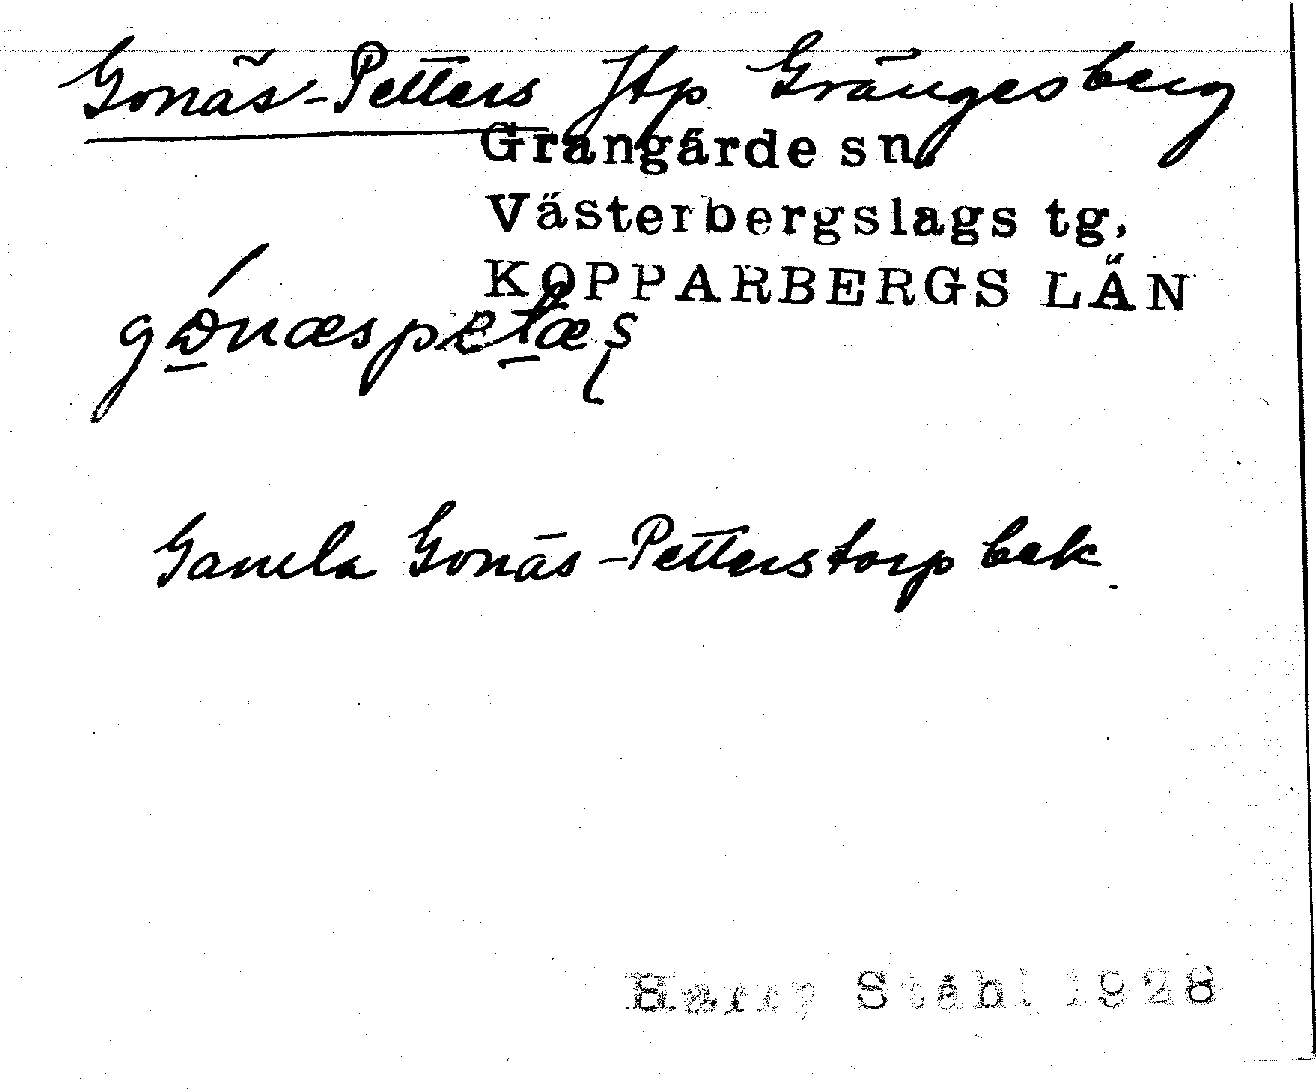 Gonäs-Petters ftp Grängesberg
Grangärde sn.
Västerbergslags tg.
KOPPARBERGS LÄN
Gamla Gonäs-Petterstorp bek.
Harry Ståhl 1928